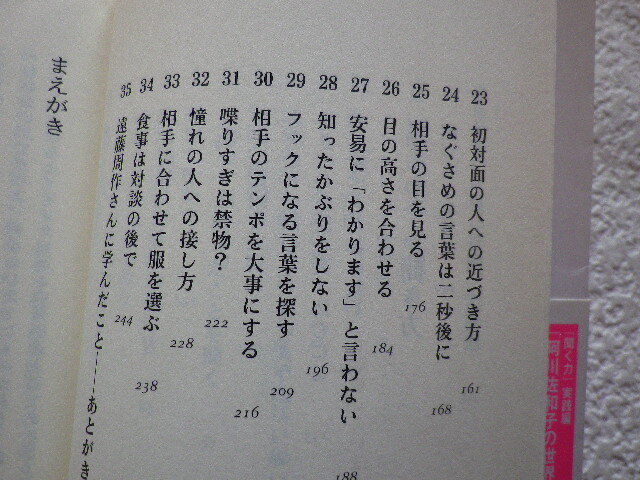 「聞く力」実践編
阿川佐和子の世界
23 初対面の人への近づき方 161
24 なぐさめの言葉は二秒後に 168
25 相手の目を見る 176
26 目の高さを合わせる 184
27 安易に「わかります」と言わない 188
28 知ったかぶりをしない 196
29 フックになる言葉を探す 209
30 相手のテンポを大事にする 216
31 喋りすぎは禁物? 222
32 憧れの人への接し方 228
33 相手に合わせて服を選ぶ 238
34 食事は対談の後で 244
35 遠藤周作さんに学んだこと——あとがき
まえがき